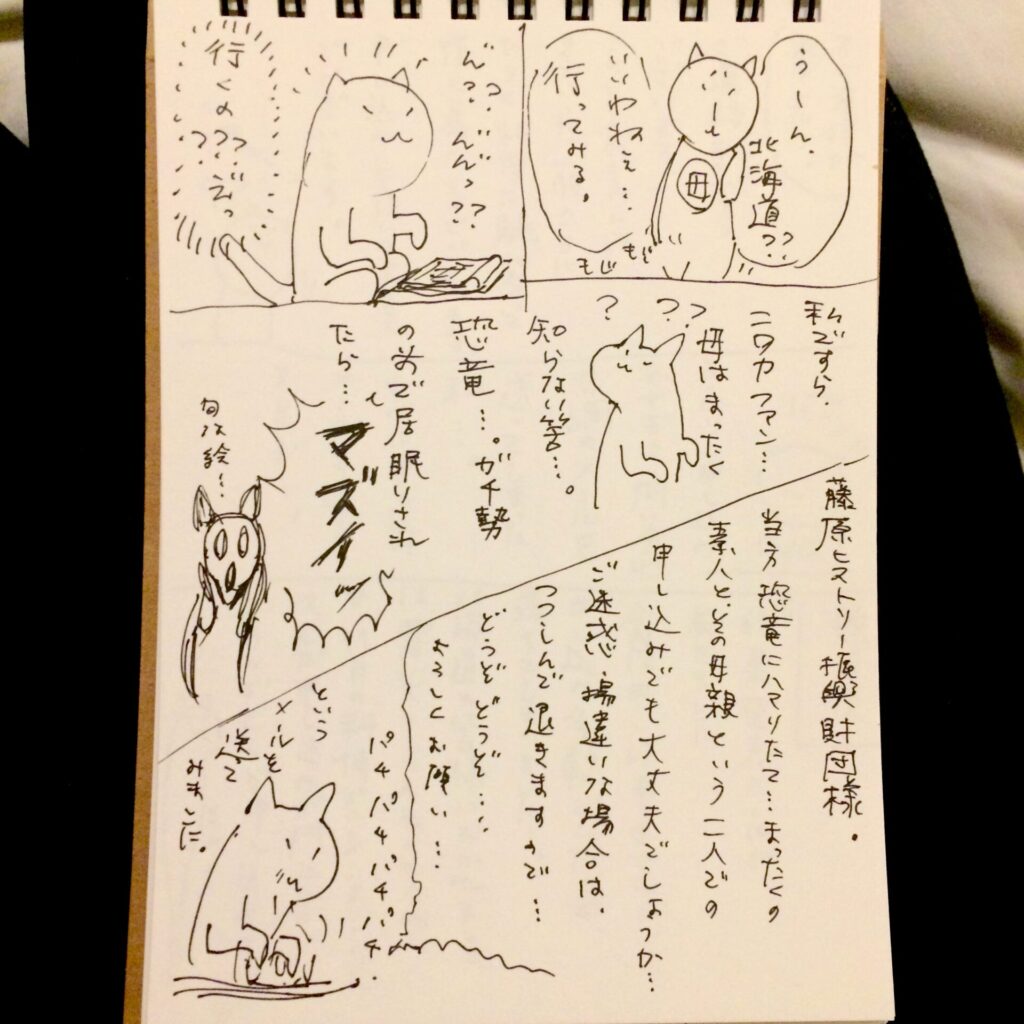 うーん、
北海道??
母
いいわねぇ…
行ってみる。
もじもじ
ん??
んんっ??
行くの??
えっ?
私ですら、
ニワカファン…
母はまったく
知らない筈…。
???
恐竜…。ガチ勢
の前で居眠りされ
たら…
マズイッ
旬な絵…
藤原ヒストリー振興財団様。
当方恐竜にハマりたて…まったくの
素人と、その母親という二人での
申し込みでも大丈夫でしょうか…
ご迷惑、場違いな場合は、
つつしんで退きますので…
どうぞどうぞ…
よろしくお願い…
パチパチパチパチ
という
メールを
送って
みました。